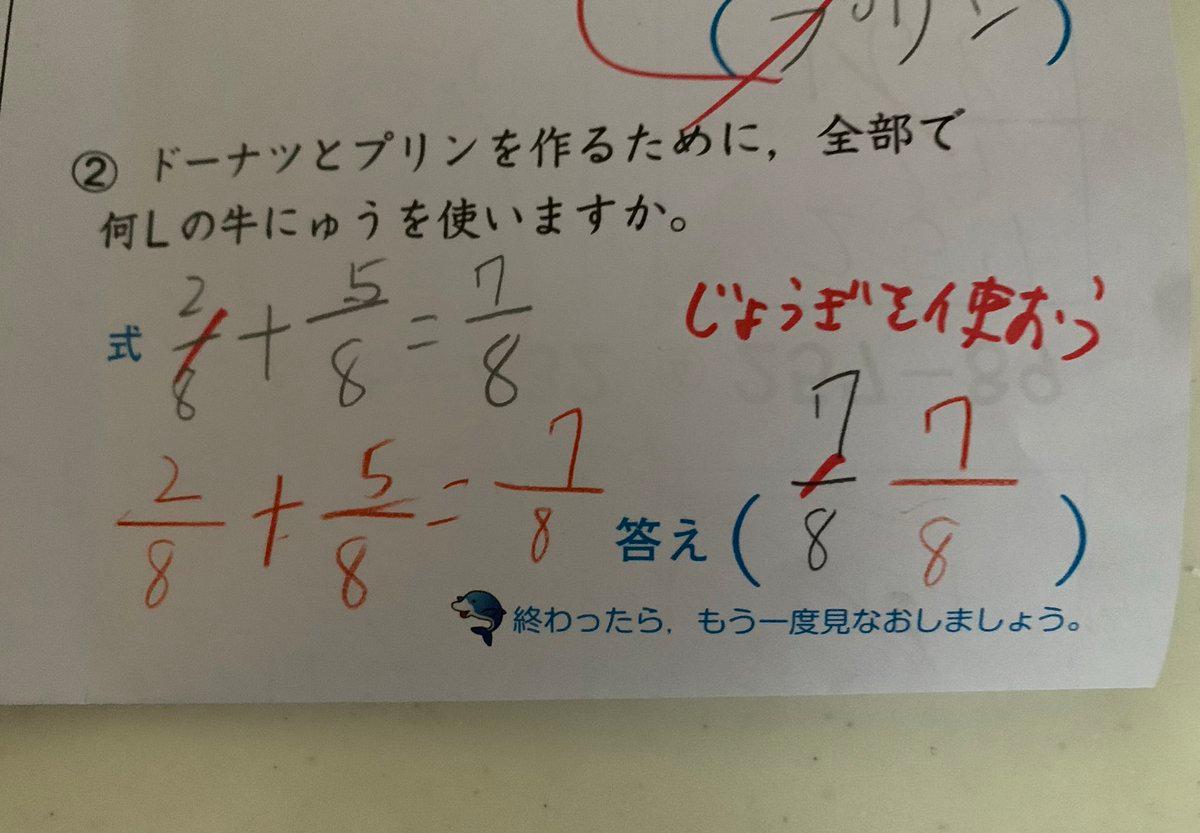 (プリン)
② ドーナツとプリンを作るために，全部で
何Lの牛にゅうを使いますか。
式 2/8 + 5/8 = 7/8
じょうぎを使おう
2/8 + 5/8 = 7/8
答え ( 7/8 7/8 )
終わったら，もう一度見なおしましょう。